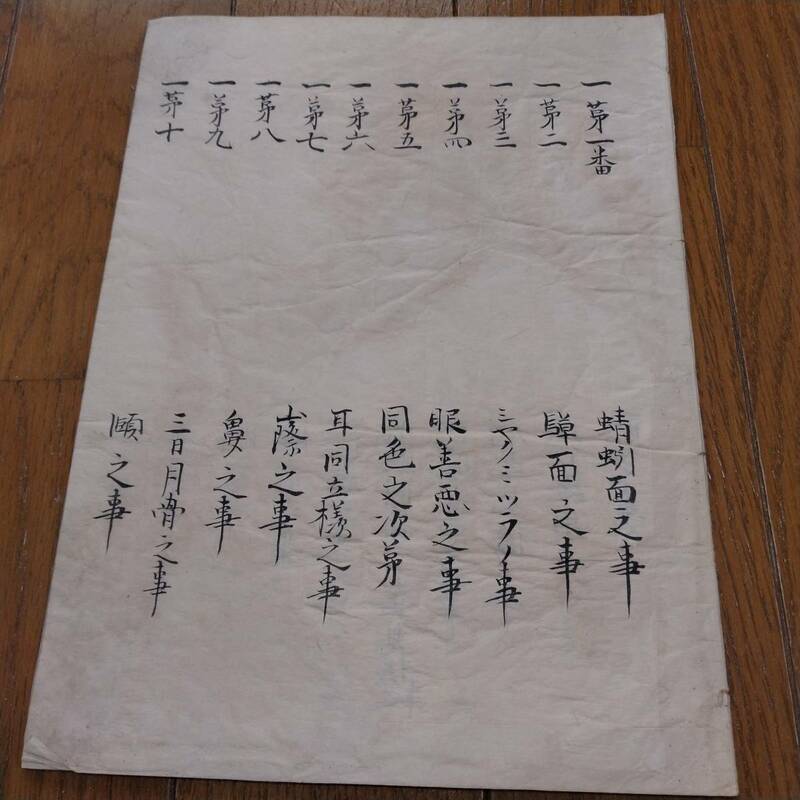 一 第一番 蜻蚓面之事
一 第二 騨面之事
一 第三 ミヤクミツラノ事
一 第四 眼善悪之事
一 第五 同色之次第
一 第六 耳同立様之事
一 第七 際之事
一 第八 鼻之事
一 第九 三日月骨之事
一 第十 頤之事